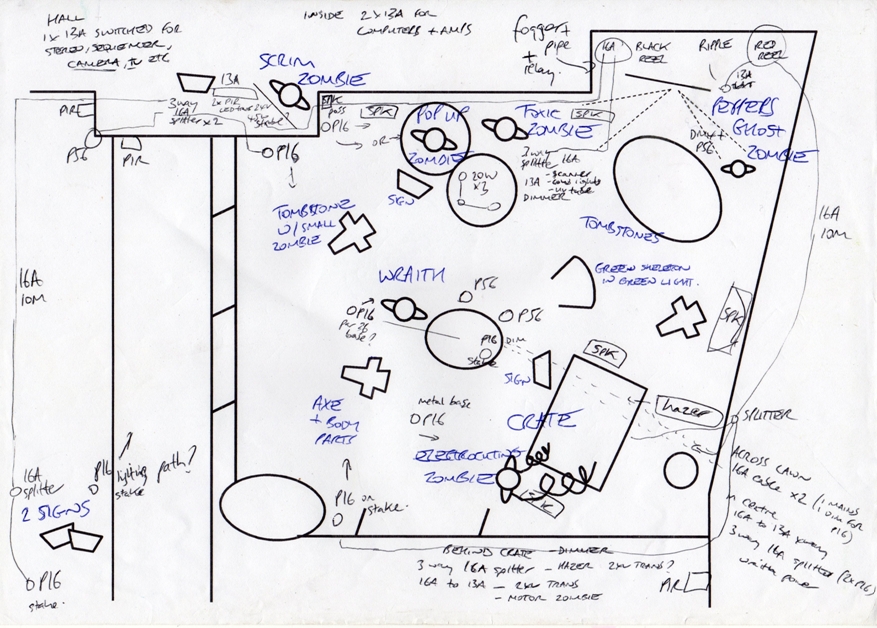 HALL
1 x 13A SWITCHED FOR
STEREO, SEQUENCER,
CAMERA, TV ETC
INSIDE 2 x 13A FOR
COMPUTERS + AMPS
fogger +
pipe
+
relay.
16A
BLACK
REEL
RIPPLE
RED
REEL
13A
SCRIM
ZOMBIE
13A
PIR
3 way
16A
splitter x 2
2 x PIR
P56
PIR
OP16
SPK
SPK
OP16
OR
POP UP
ZOMBIE
TOXIC
ZOMBIE
SPK
PEPPERS
GHOST
ZOMBIE
DIM +
P56
3 way
splitter 16A
- scanner
13A - coloured lights
- uv tube
DIMMER
20W
x3
SIGN
TOMBSTONE
W/ SMALL
ZOMBIE
TOMBSTONES
16A
10M
16A
10M
WRAITH
P56
OP56
GREEN SKELETON
IN GREEN LIGHT.
OP16
base?
P16
stake
DIM
SPK
SPK
SIGN
AXE
+ BODY
PARTS
metal base
OP16
CRATE
hazer
SPLITTER
ELECTROCUTING
ZOMBIE
SPK
lighting path?
16A
splitter
P16
stake
2 SIGNS
OP16
stake.
P16 on
stake.
ACROSS LAWN
16A cable x 2 (1 MAINS
1 DIM FOR
P16)
in centre
16A to 13A x way
3 way 16A splitter (2 x P16)
BEHIND CRATE - DIMMER
3 way 16A splitter - HAZER 2KV TRANS?
16A to 13A - 2KV TRANS
- MOTOR ZOMBIE
PIR